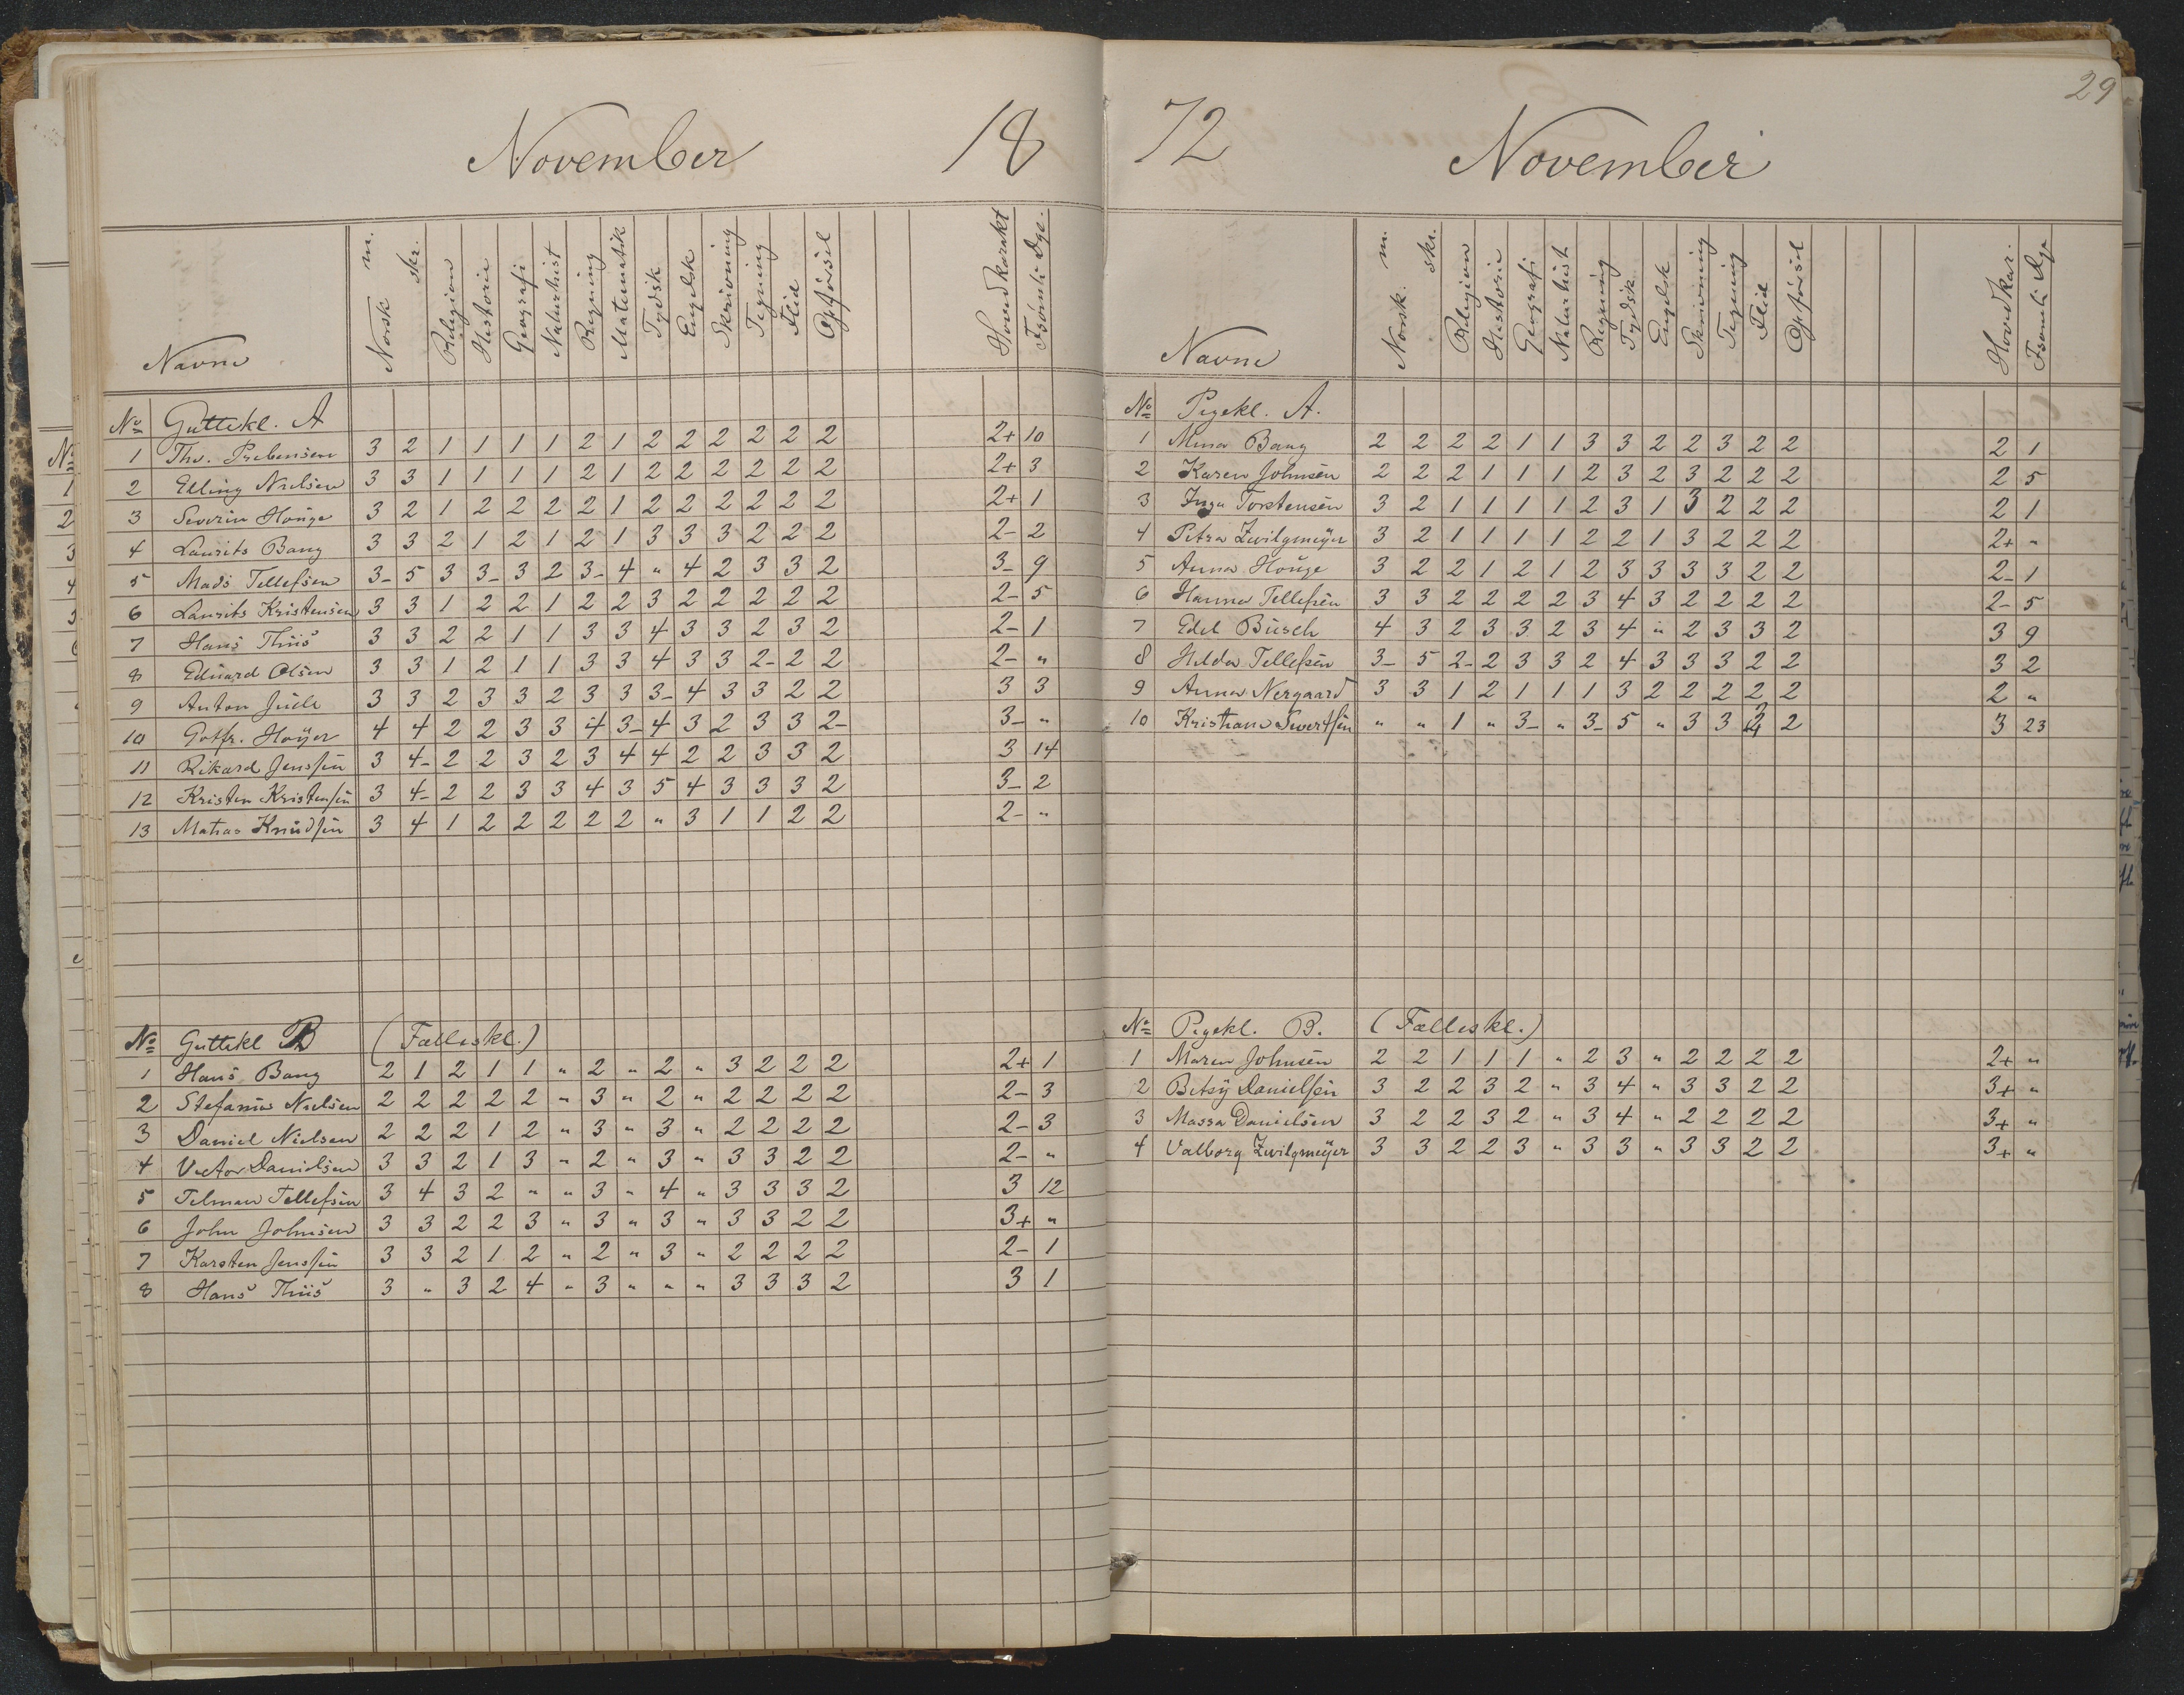 November 18
Navne Norsk m. skr. Religion Historie Geografi Naturhist Regning Matematik Tydsk Engelsk Skrivning Tegning Flid Opførsel Hovedkarakt Fsømte Dge.
No Guttekl. A
1 Thv. Prebensen 3 2 1 1 1 1 2 1 2 2 2 2 2 2 2+ 10
2 Elling Nielsen 3 3 1 1 1 1 2 1 2 2 2 2 2 2 2+ 3
3 Severin Houge 3 2 1 2 2 2 2 1 2 2 2 2 2 2 2+ 1
4 Laurits Bang 3 3 2 1 2 1 2 1 3 3 3 2 2 2 2- 2
5 Mads Tellefsen 3- 5 3 3- 3 2 3- 4 " 4 2 3 3 2 3- 9
6 Laurits Kristensen 3 3 1 2 2 1 2 2 3 2 2 2 2 2 2- 5
7 Hans Thiis 3 3 2 2 1 1 3 3 4 3 3 2 3 2 2- 1
8 Eduard Olsen 3 3 1 2 1 1 3 3 4 3 3 2- 2 2 2- "
9 Anton Juell 3 3 2 3 3 2 3 3 3- 4 3 3 2 2 3 3
10 Gotfr. Høyer 4 4 2 2 3 3 4 3- 4 3 2 3 3 2- 3- "
11 Rikard Jenssen 3 4- 2 2 3 2 3 4 4 2 2 3 3 2 3 14
12 Kristen Kristensen 3 4- 2 2 3 3 4 3 5 4 3 3 3 2 3- 2
13 Matias Knudsen 3 4 1 2 2 2 2 2 " 3 1 1 2 2 2- "
No Guttekl B (Fælleskl.)
1 Hans Bang 2 1 2 1 1 " 2 " 2 " 3 2 2 2 2+ 1
2 Stefanus Nielsen 2 2 2 2 2 " 3 " 2 " 2 2 2 2 2- 3
3 Daniel Nielsen 2 2 2 1 2 " 3 " 3 " 2 2 2 2 2- 3
4 Victor Danielsen 3 3 2 1 3 " 2 " 3 " 3 3 2 2 2- "
5 Telman Tellefsen 3 4 3 2 " " 3 " 4 " 3 3 3 2 3 12
6 John Johnsen 3 3 2 2 3 " 3 " 3 " 3 3 2 2 3+ "
7 Karsten Jenssen 3 3 2 1 2 " 2 " 3 " 2 2 2 2 2- 1
8 Hans Thiis 3 " 3 2 4 " 3 " " " 3 3 3 2 3 1
29
72 November
Navne Norsk. m. skr. Religion Historie Geografi Naturhist Regning Tydsk Engelsk Skrivning Tegning Flid Opførsel Hovedkar. Fsømte Dge
No Pigekl. A.
1 Mina Bang 2 2 2 2 1 1 3 3 2 2 3 2 2 2 1
2 Karen Johnsen 2 2 2 1 1 1 2 3 2 3 2 2 2 2 5
3 Inga Torstensen 3 2 1 1 1 1 2 3 1 3 2 2 2 2 1
4 Petra Zwilgmeyer 3 2 1 1 1 1 2 2 1 3 2 2 2 2+ "
5 Anna Houge 3 2 2 1 2 1 2 3 3 3 3 2 2 2- 1
6 Hanna Tellefsen 3 3 2 2 2 2 3 4 3 2 2 2 2 2- 5
7 Edel Busch 4 3 2 3 3 2 3 4 " 2 3 3 2 3 9
8 Hilda Tellefsen 3- 5 2- 2 3 3 2 4 3 3 3 2 2 3 2
9 Anna Nergaard 3 3 1 2 1 1 1 3 2 2 2 2 2 2 "
10 Kristiane Sivertsen " " 1 " 3- " 3- 5 " 3 3 3 2 3 23
No Pigekl. B. (Fælleskl.)
1 Maren Johnsen 2 2 1 1 1 " 2 3 " 2 2 2 2 2+ "
2 Betsy Danielsen 3 2 2 3 2 " 3 4 " 3 3 2 2 3+ "
3 Massa Danielsen 3 2 2 3 2 " 3 4 " 2 2 2 2 3+ "
4 Valborg Zwilgmeyer 3 3 2 2 3 " 3 3 " 3 3 2 2 3+ "